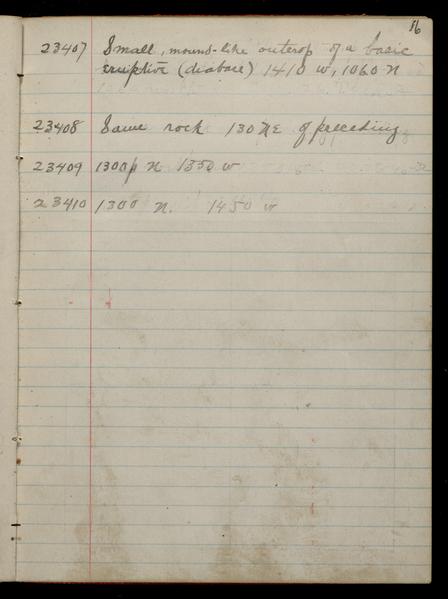 16
23407 Small, mound-like outcrop of a basic
eruptive (diabase) 1410 W, 1060 N
23408 Same rock 130 NE of preceding
23409 1300 N 1350 W
23410 1300 N. 1450 W